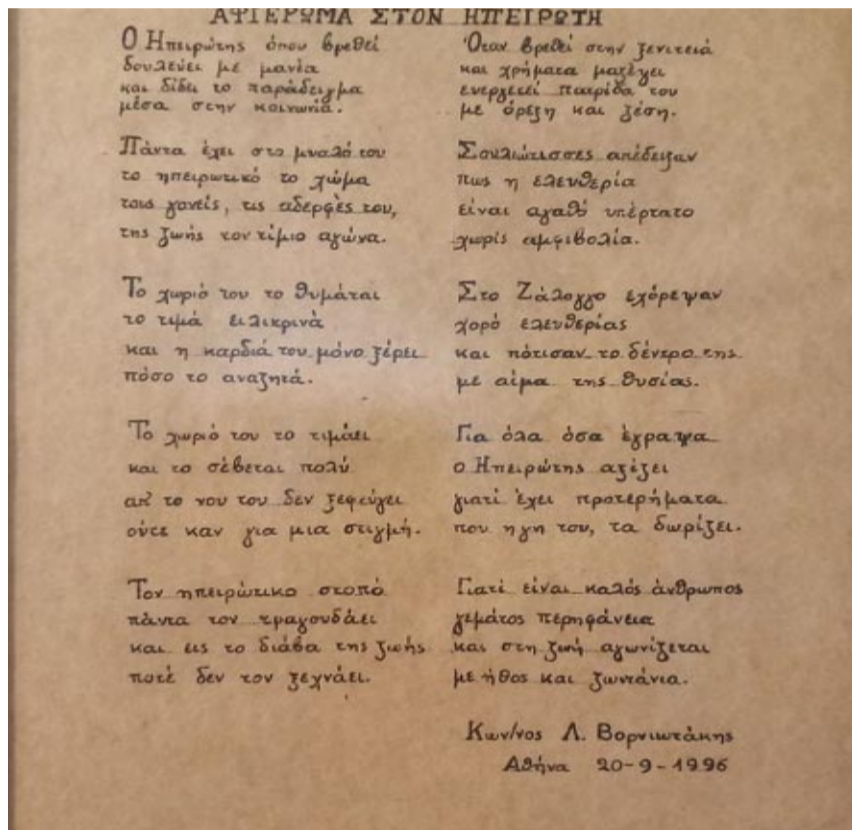 ΑΦΙΕΡΩΜΑ ΣΤΟΝ ΗΠΕΙΡΩΤΗ
Ο Ηπειρώτης όπου βρεθεί
δουλεύει με μανία
και δίδει το παράδειγμα
μέσα στην κοινωνία.
Πάντα έχει στο μυαλό του
το ηπειρωτικό το χώμα
τους γονείς, τις αδερφές του,
της ζωής τον τίμιο αγώνα.
Το χωριό του το θυμάται
το τιμά ειλικρινά
και η καρδιά του μόνο ξέρει
πόσο το αναζητά.
Το χωριό του το τιμάει
και το σέβεται πολύ
απ' το νου του δεν ξεφεύγει
ούτε καν για μια στιγμή.
Τον ηπειρώτικο σκοπό
πάντα τον τραγουδάει
και εις το διάβα της ζωής
ποτέ δεν τον ξεχνάει.
Όταν βρεθεί στην ξενιτειά
και χρήματα μαζέψει
ευεργετεί πατρίδα του
με όρεξη και ζέση.
Σουλιώτισσες απέδειξαν
πως η ελευθερία
είναι αγαθό υπέρτατο
χωρίς αμφιβολία.
Στο Ζάλογγο εχόρεψαν
χορό ελευθερίας
και πότισαν το δέντρο της
με αίμα της θυσίας.
Για όλα όσα έγραψα
ο Ηπειρώτης αξίζει
γιατί έχει προτερήματα
που η γη του, τα δωρίζει.
Γιατί είναι καλός άνθρωπος
γεμάτος περηφάνεια
και στη ζωή αγωνίζεται
με ήθος και ζωντάνια.
Κων/νος Λ. Βορνιωτάκης
Αθήνα 20-9-1996